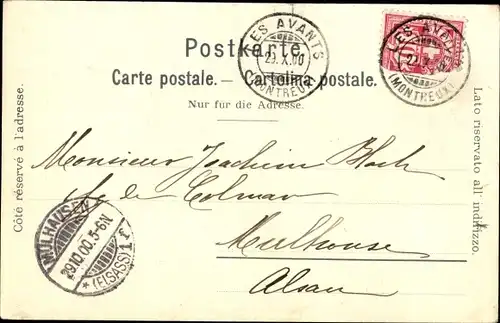 Postkarte.
Carte postale. — Cartolina postale.
Nur für die Adresse.
Côté réservé à l'adresse.
Lato riservato all' indirizzo.
LES AVANTS
29.X.00
(MONTREUX)
LES AVANTS
29.X.00
(MONTREUX)
Monsieur Joachim Bloch
fg de Colmar
Mulhouse
Alsace
MÜLHAUSEN
29.10.00.5-6N.
*(ELSASS)1 f